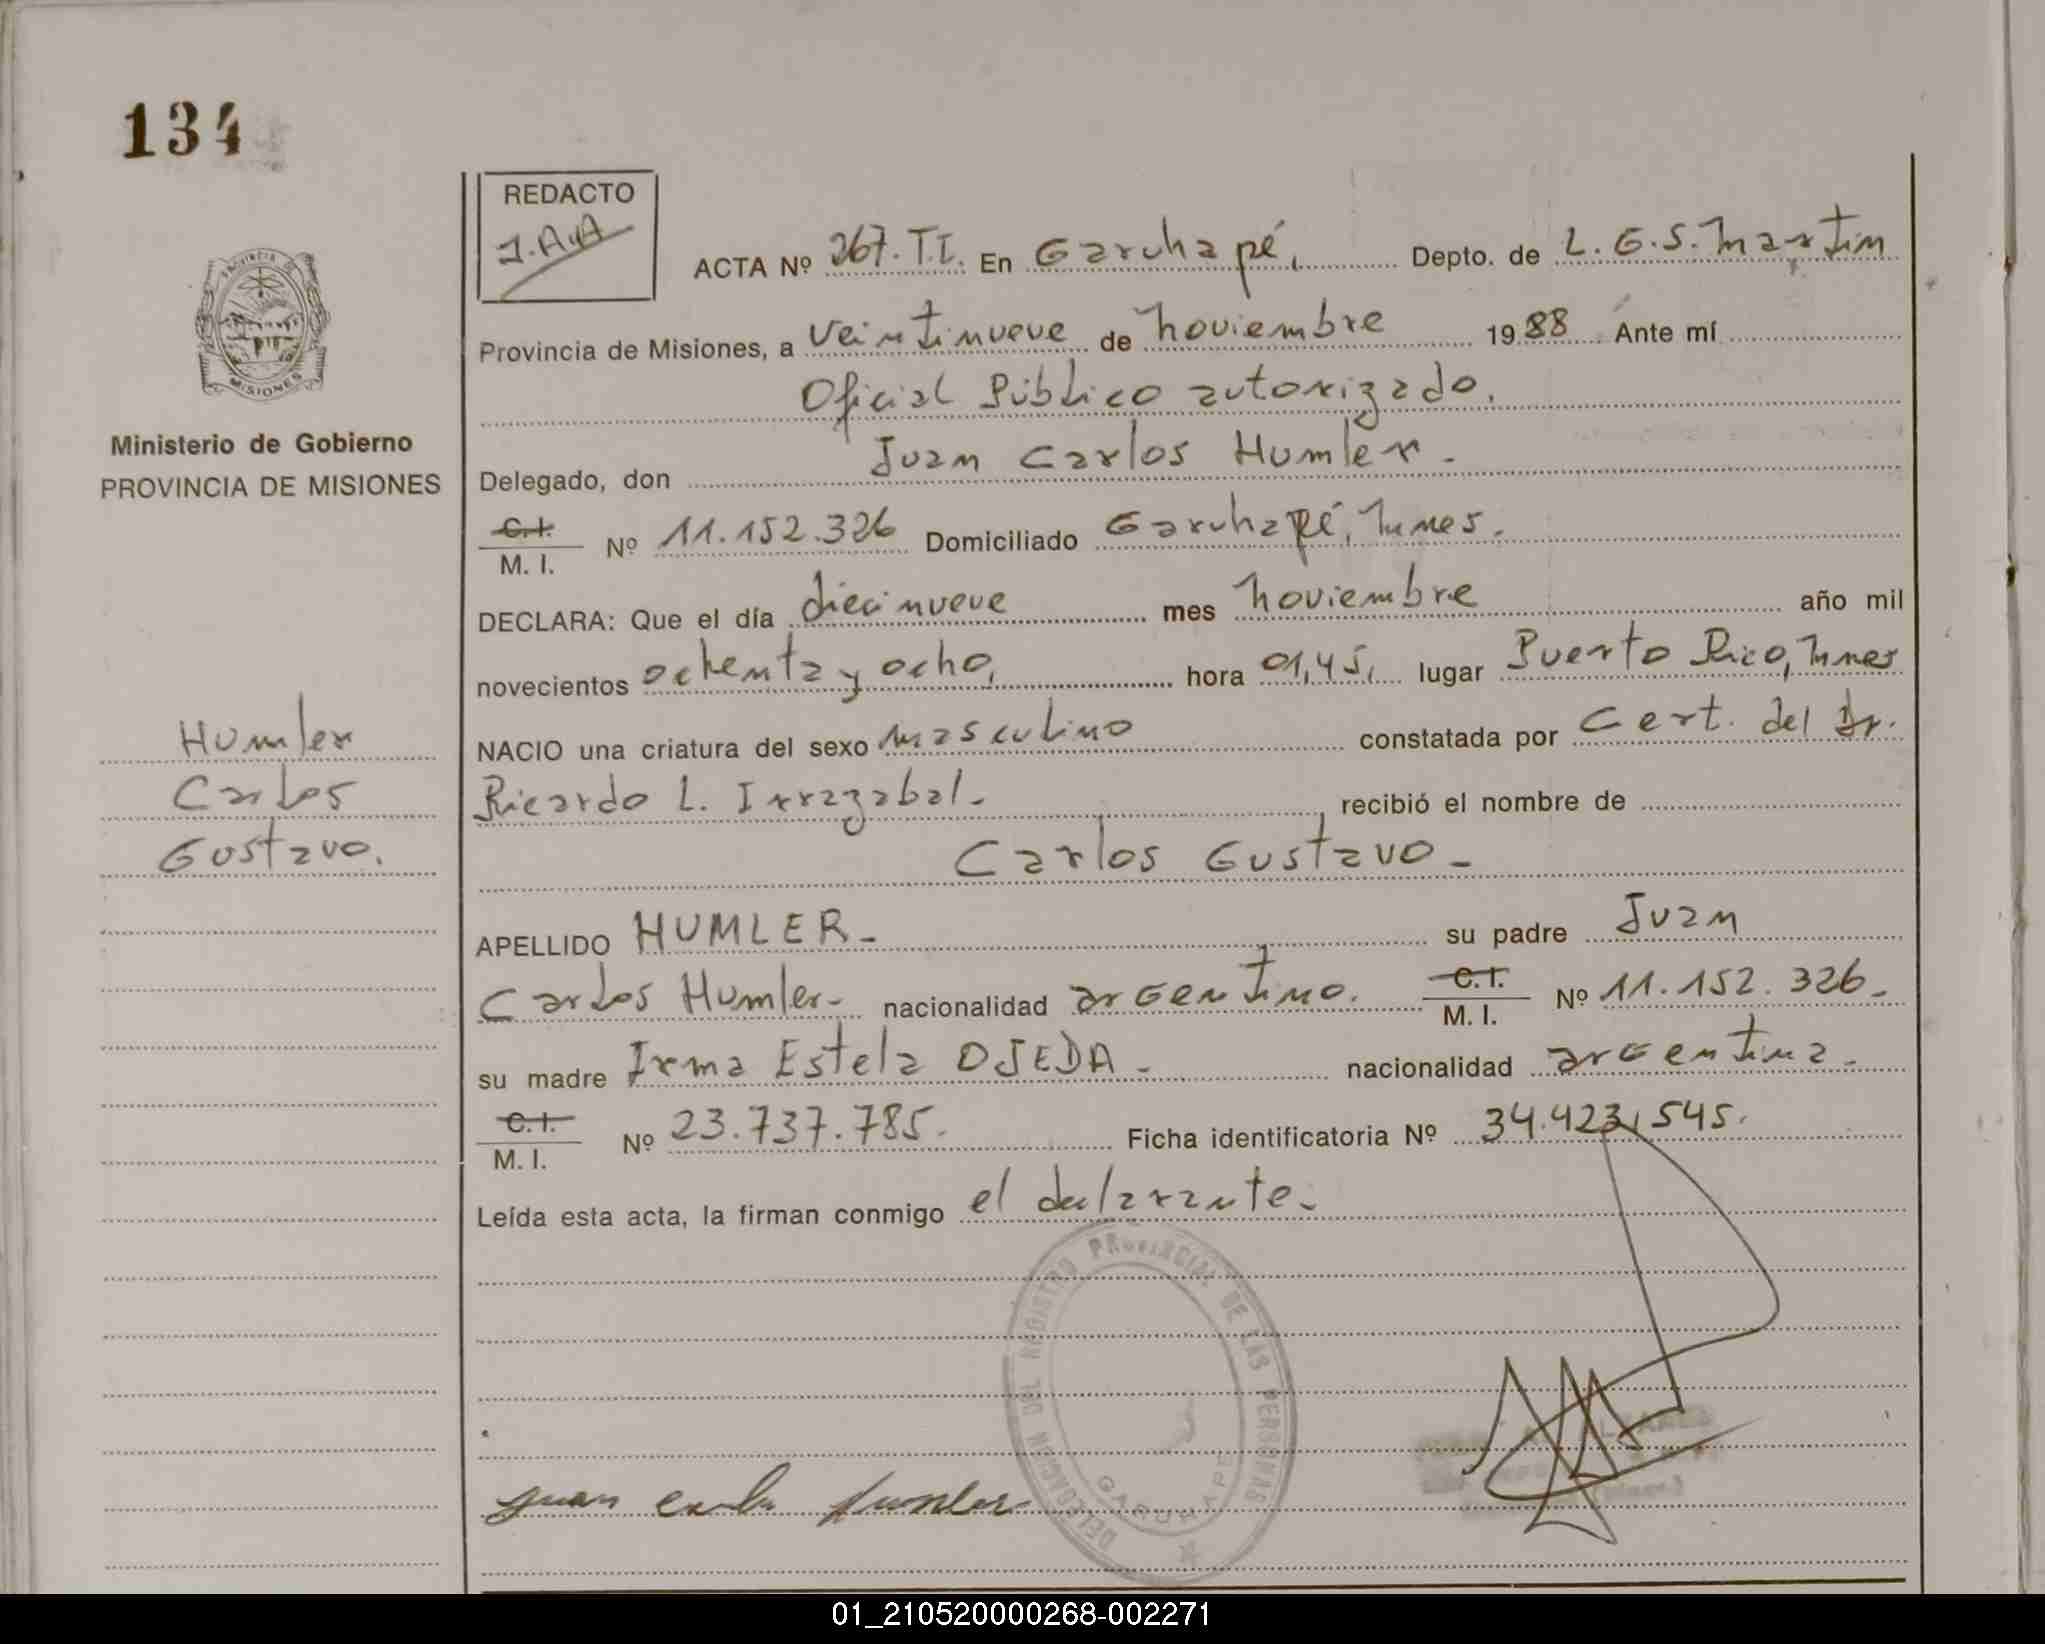 134
REDACTO
J.A.A
ACTA Nº 267.T.I. En Garuhapé, Depto. de L.G.S. Martin
Provincia de Misiones, a veintinueve de noviembre 1988 Ante mí
Oficial Público autorizado.
Delegado, don Juan Carlos Humler.
C.I.
M. I. Nº 11.152.326 Domiciliado Garuhapé, Mnes.
DECLARA: Que el día diecinueve mes noviembre año mil
novecientos ochenta y ocho, hora 01,45, lugar Puerto Rico, Mnes
NACIO una criatura del sexo masculino constatada por Cert. del Dr.
Ricardo L. Irrazabal. recibió el nombre de
Carlos Gustavo -
APELLIDO HUMLER - su padre Juan
Carlos Humler- nacionalidad argentino. C.I. M. I. Nº 11.152.326.
su madre Irma Estela OJEDA - nacionalidad argentina -
C.I.
M. I. Nº 23.737.785. Ficha identificatoria Nº 34.423,545.
Leída esta acta, la firman conmigo el declarante.
PROVINCIA DE
MISIONES
Ministerio de Gobierno
PROVINCIA DE MISIONES
Humler
Carlos
Gustavo.
DELEGACION DEL REGISTRO PROVINCIAL DE LAS PERSONAS
GARUHAPE
Juan Carlos Humler
01_210520000268-002271